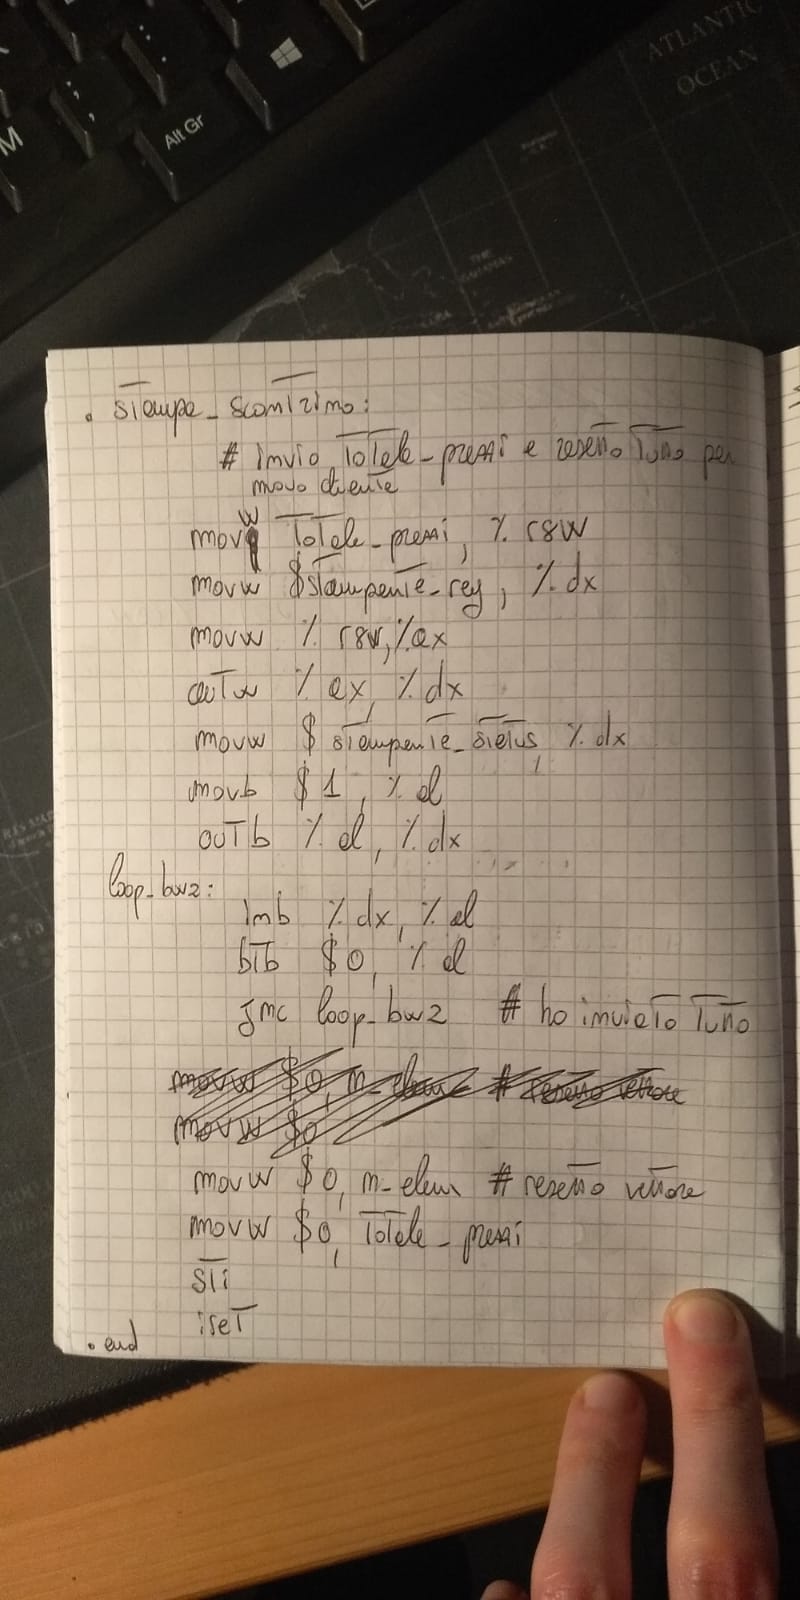 ATLANTIC
OCEAN
M
; ,
: .
Alt Gr
. stampa_scontrino:
# invio totale_prezzi e resetto tutto per
nuovo cliente
movw totale_prezzi, % r8w
movw $stampante_reg, % dx
movw % r8w, % ax
outw % ax, % dx
movw $ stampante_status, % dx
movb $1, % al
outb % al, % dx
loop_bw2:
inb % dx, % al
btb $0, % al
jnc loop_bw2 # ho inviato tutto
movw $0, n_elem # resetto vettore
movw $0
movw $0, n_elem # resetto vettore
movw $0, totale_prezzi
sti
iret
.end